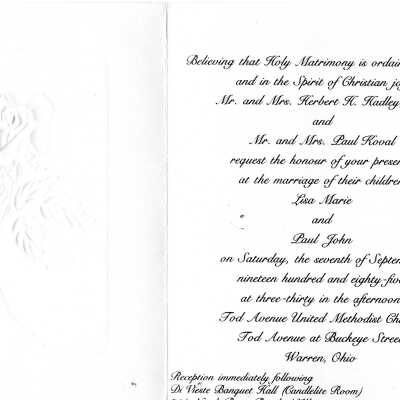 Believing that Holy Matrimony is ordai
and in the Spirit of Christian jo
Mr. and Mrs. Herbert H. Hadley
and
Mr. and Mrs. Paul Koval
request the honour of your presen
at the marriage of their children
Lisa Marie
and
Paul John
on Saturday, the seventh of Septem
nineteen hundred and eighty-five
at three-thirty in the afternoon
Tod Avenue United Methodist Ch
Tod Avenue at Buckeye Stree
Warren, Ohio
Reception immediately following
Di Vieste Banquet Hall (Candlelite Room)